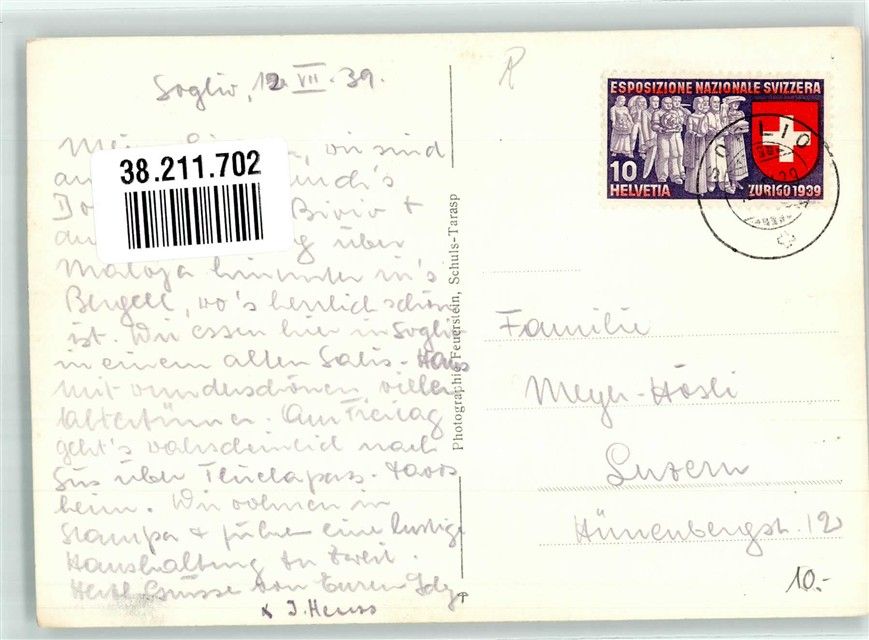 Soglio, 12. VII. 39.
wir sind
Bivio +
über
Maloja hinunter in's
Bergell, wo's herrlich schön
ist. Wir essen hier in Soglio
in einem alten Salis-Haus
mit wunderschönen vielen
Altertümer. Am Freitag
geht's wahrscheinlich nach
Süs über Flüelapass-Davos
heim. Wir wohnen in
Stampa + führen eine lustige
Haushaltung zu zweit.
Herzl. Grüsse von Euren
+ J. Heuss
38.211.702
Photographie Feuerstein, Schuls-Tarasp
R
ESPOSIZIONE NAZIONALE SVIZZERA
10
HELVETIA
ZURIGO 1939
Familie
Meyer-Hösli
Luzern
Hünenbergstr. 12
10.-